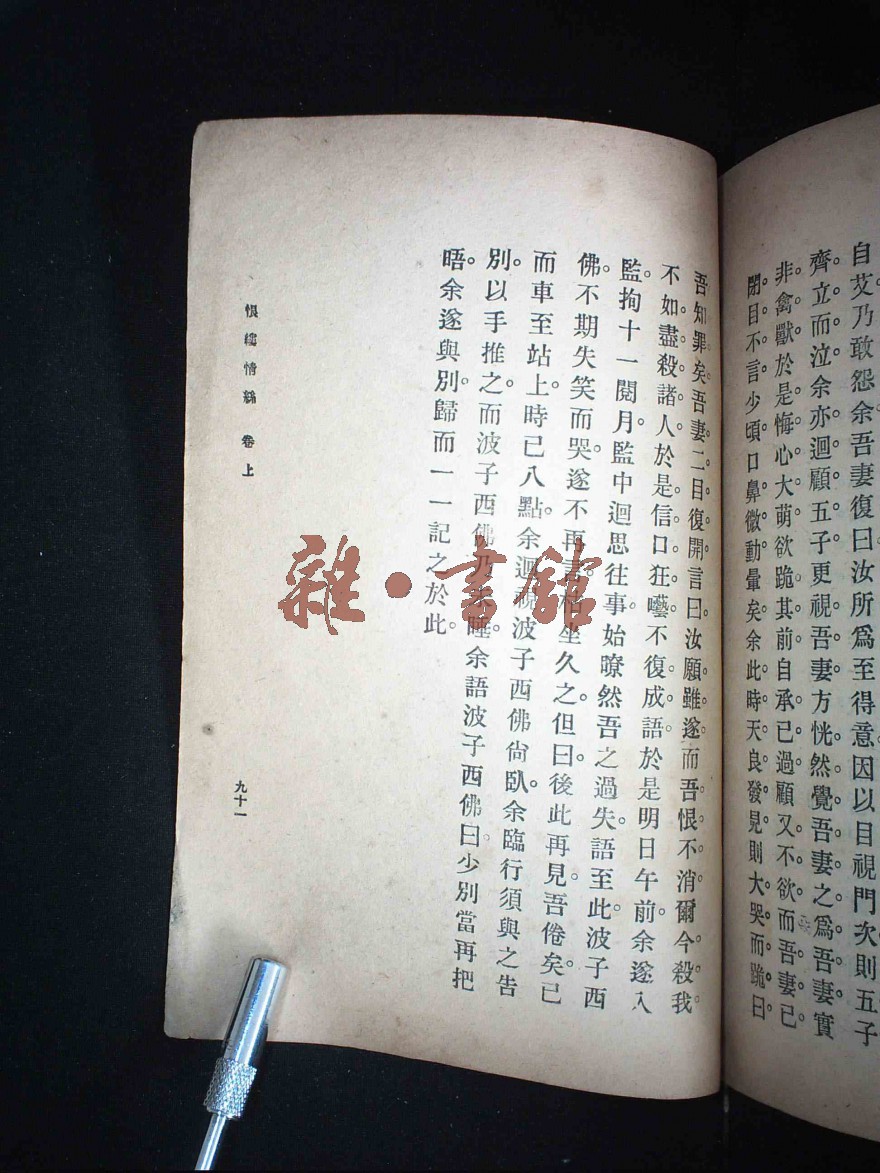 自艾乃敢怨余吾妻復曰汝所爲至得意因以目視門次則五子
齊立而泣余亦迴顧五子更視吾妻方恍然覺吾妻之爲吾妻實
非禽獸於是悔心大萌欲跪其前自承已過顧又不欲而吾妻已
閉目不言少頃口鼻微動暈矣余此時天良發見則大哭而跪曰
吾知罪矣吾妻二目復開言曰汝願雖遂而吾恨不消爾今殺我
不如盡殺諸人於是信口狂囈不復成語於是明日午前余遂入
監拘十一閱月監中迴思往事始暸然吾之過失語至此波子西
佛不期失笑而哭遂不再言枯坐久之但曰後此再見吾倦矣已
而車至站上時已八點余迴視波子西佛尙臥余臨行須與之告
別以手推之而波子西佛乃未睡余語波子西佛曰少別當再把
晤余遂與別歸而一一記之於此
恨縷情絲 卷上
九十一
雜·書館